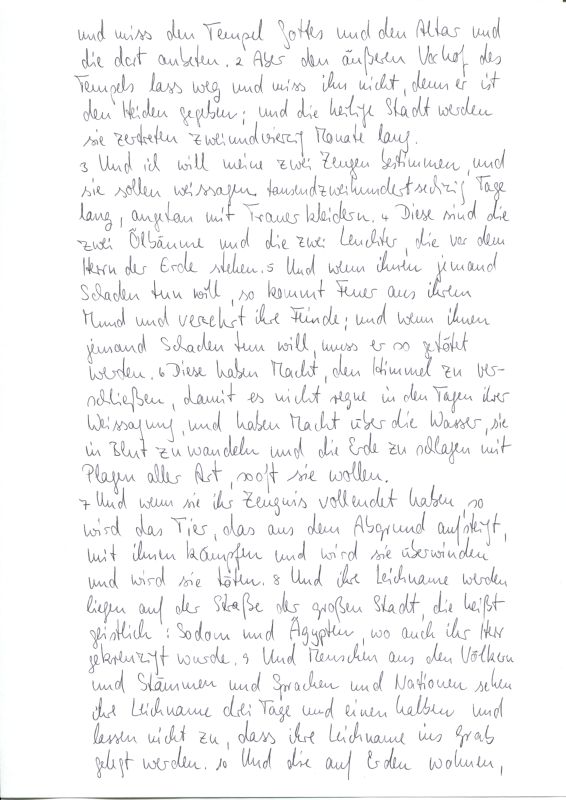 und miss den Tempel Gottes und den Altar und
die dort anbeten. 2 Aber den äußeren Vorhof des
Tempels lass weg und miss ihn nicht, denn er ist
den Heiden gegeben; und die heilige Stadt werden
sie zertreten zweiundvierzig Monate lang.
3 Und ich will meine zwei Zeugen bestimmen, und
sie sollen weissagen tausendzweihundertsechzig Tage
lang, angetan mit Trauerkleidern. 4 Diese sind die
zwei Ölbäume und die zwei Leuchter, die vor dem
Herrn der Erde stehen. 5 Und wenn ihnen jemand
Schaden tun will, so kommt Feuer aus ihrem
Mund und verzehrt ihre Feinde; und wenn ihnen
jemand Schaden tun will, muss er so getötet
werden. 6 Diese haben Macht, den Himmel zu ver-
schließen, damit es nicht regne in den Tagen ihrer
Weissagung, und haben Macht über die Wasser, sie
in Blut zu wandeln und die Erde zu schlagen mit
Plagen aller Art, sooft sie wollen.
7 Und wenn sie ihr Zeugnis vollendet haben, so
wird das Tier, das aus dem Abgrund aufsteigt,
mit ihnen kämpfen und wird sie überwinden
und wird sie töten. 8 Und ihre Leichname werden
liegen auf der Straße der großen Stadt, die heißt
geistlich: Sodom und Ägypten, wo auch ihr Herr
gekreuzigt wurde. 9 Und Menschen aus den Völkern
und Stämmen und Sprachen und Nationen sehen
ihre Leichname drei Tage und einen halben und
lassen nicht zu, dass ihre Leichname ins Grab
gelegt werden. 10 Und die auf Erden wohnen,